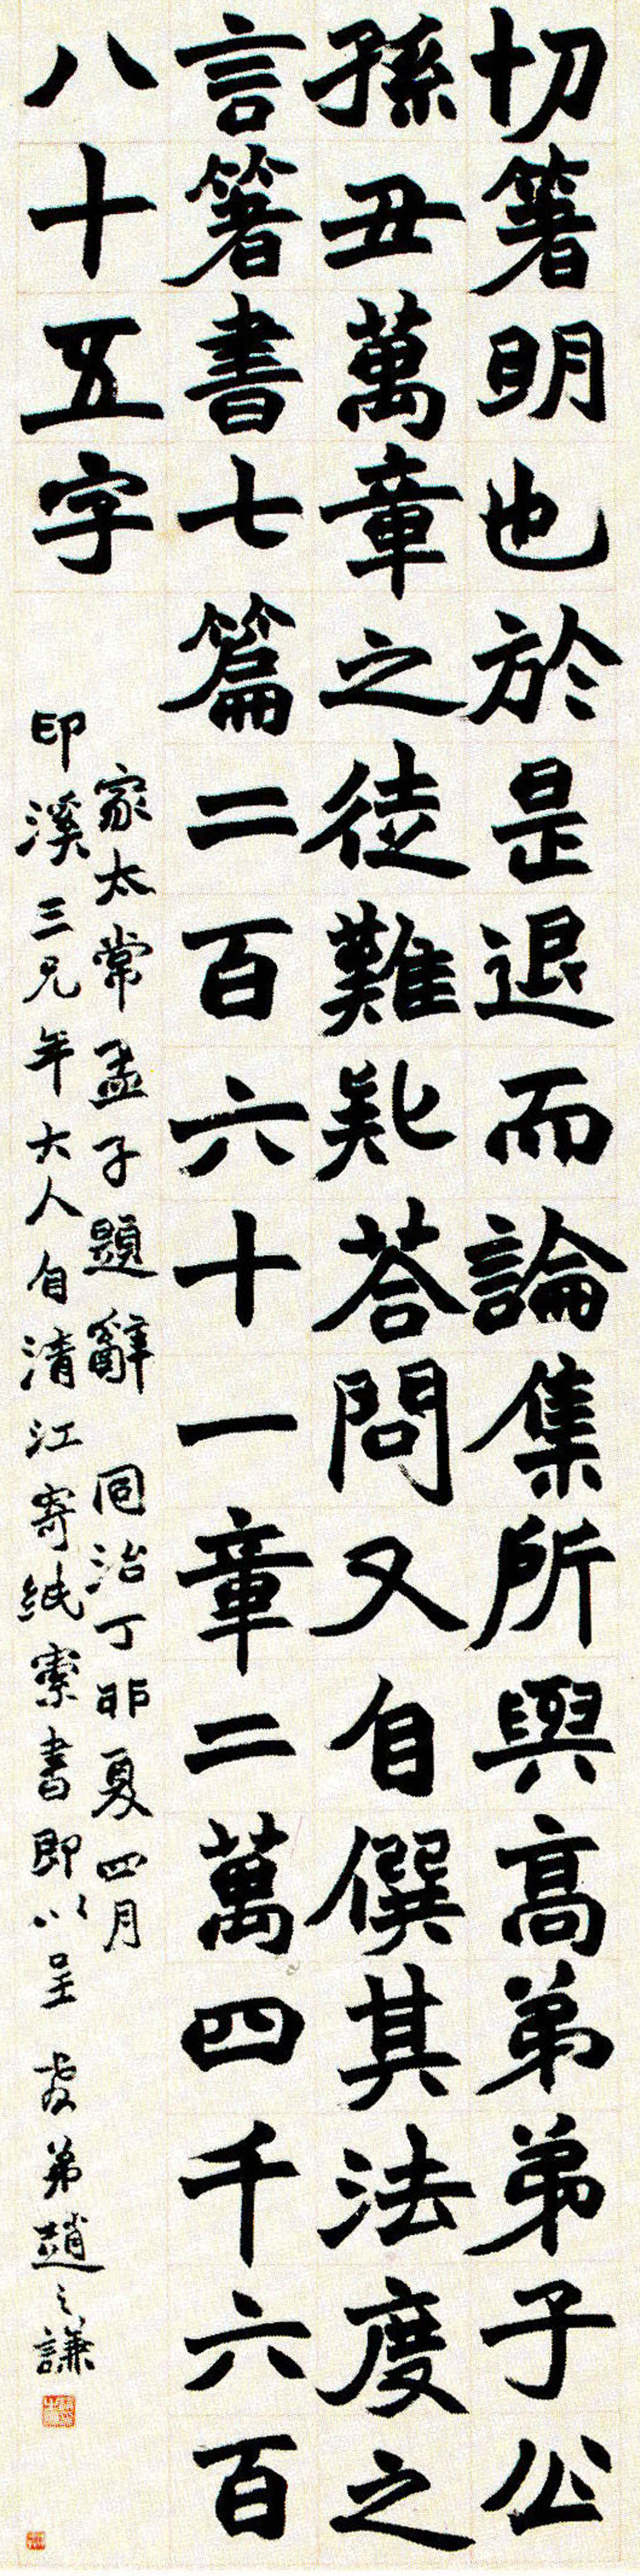 切箸明也於是退而論集所與高弟弟子公
孫丑萬章之徒難疑荅問又自僎其法度之
言箸書七篇二百六十一章二萬四千六百
八十五字
家太常孟子題辭 同治丁卯夏四月
印溪三兄年大人自清江寄紙索書即以呈 教弟趙之謙